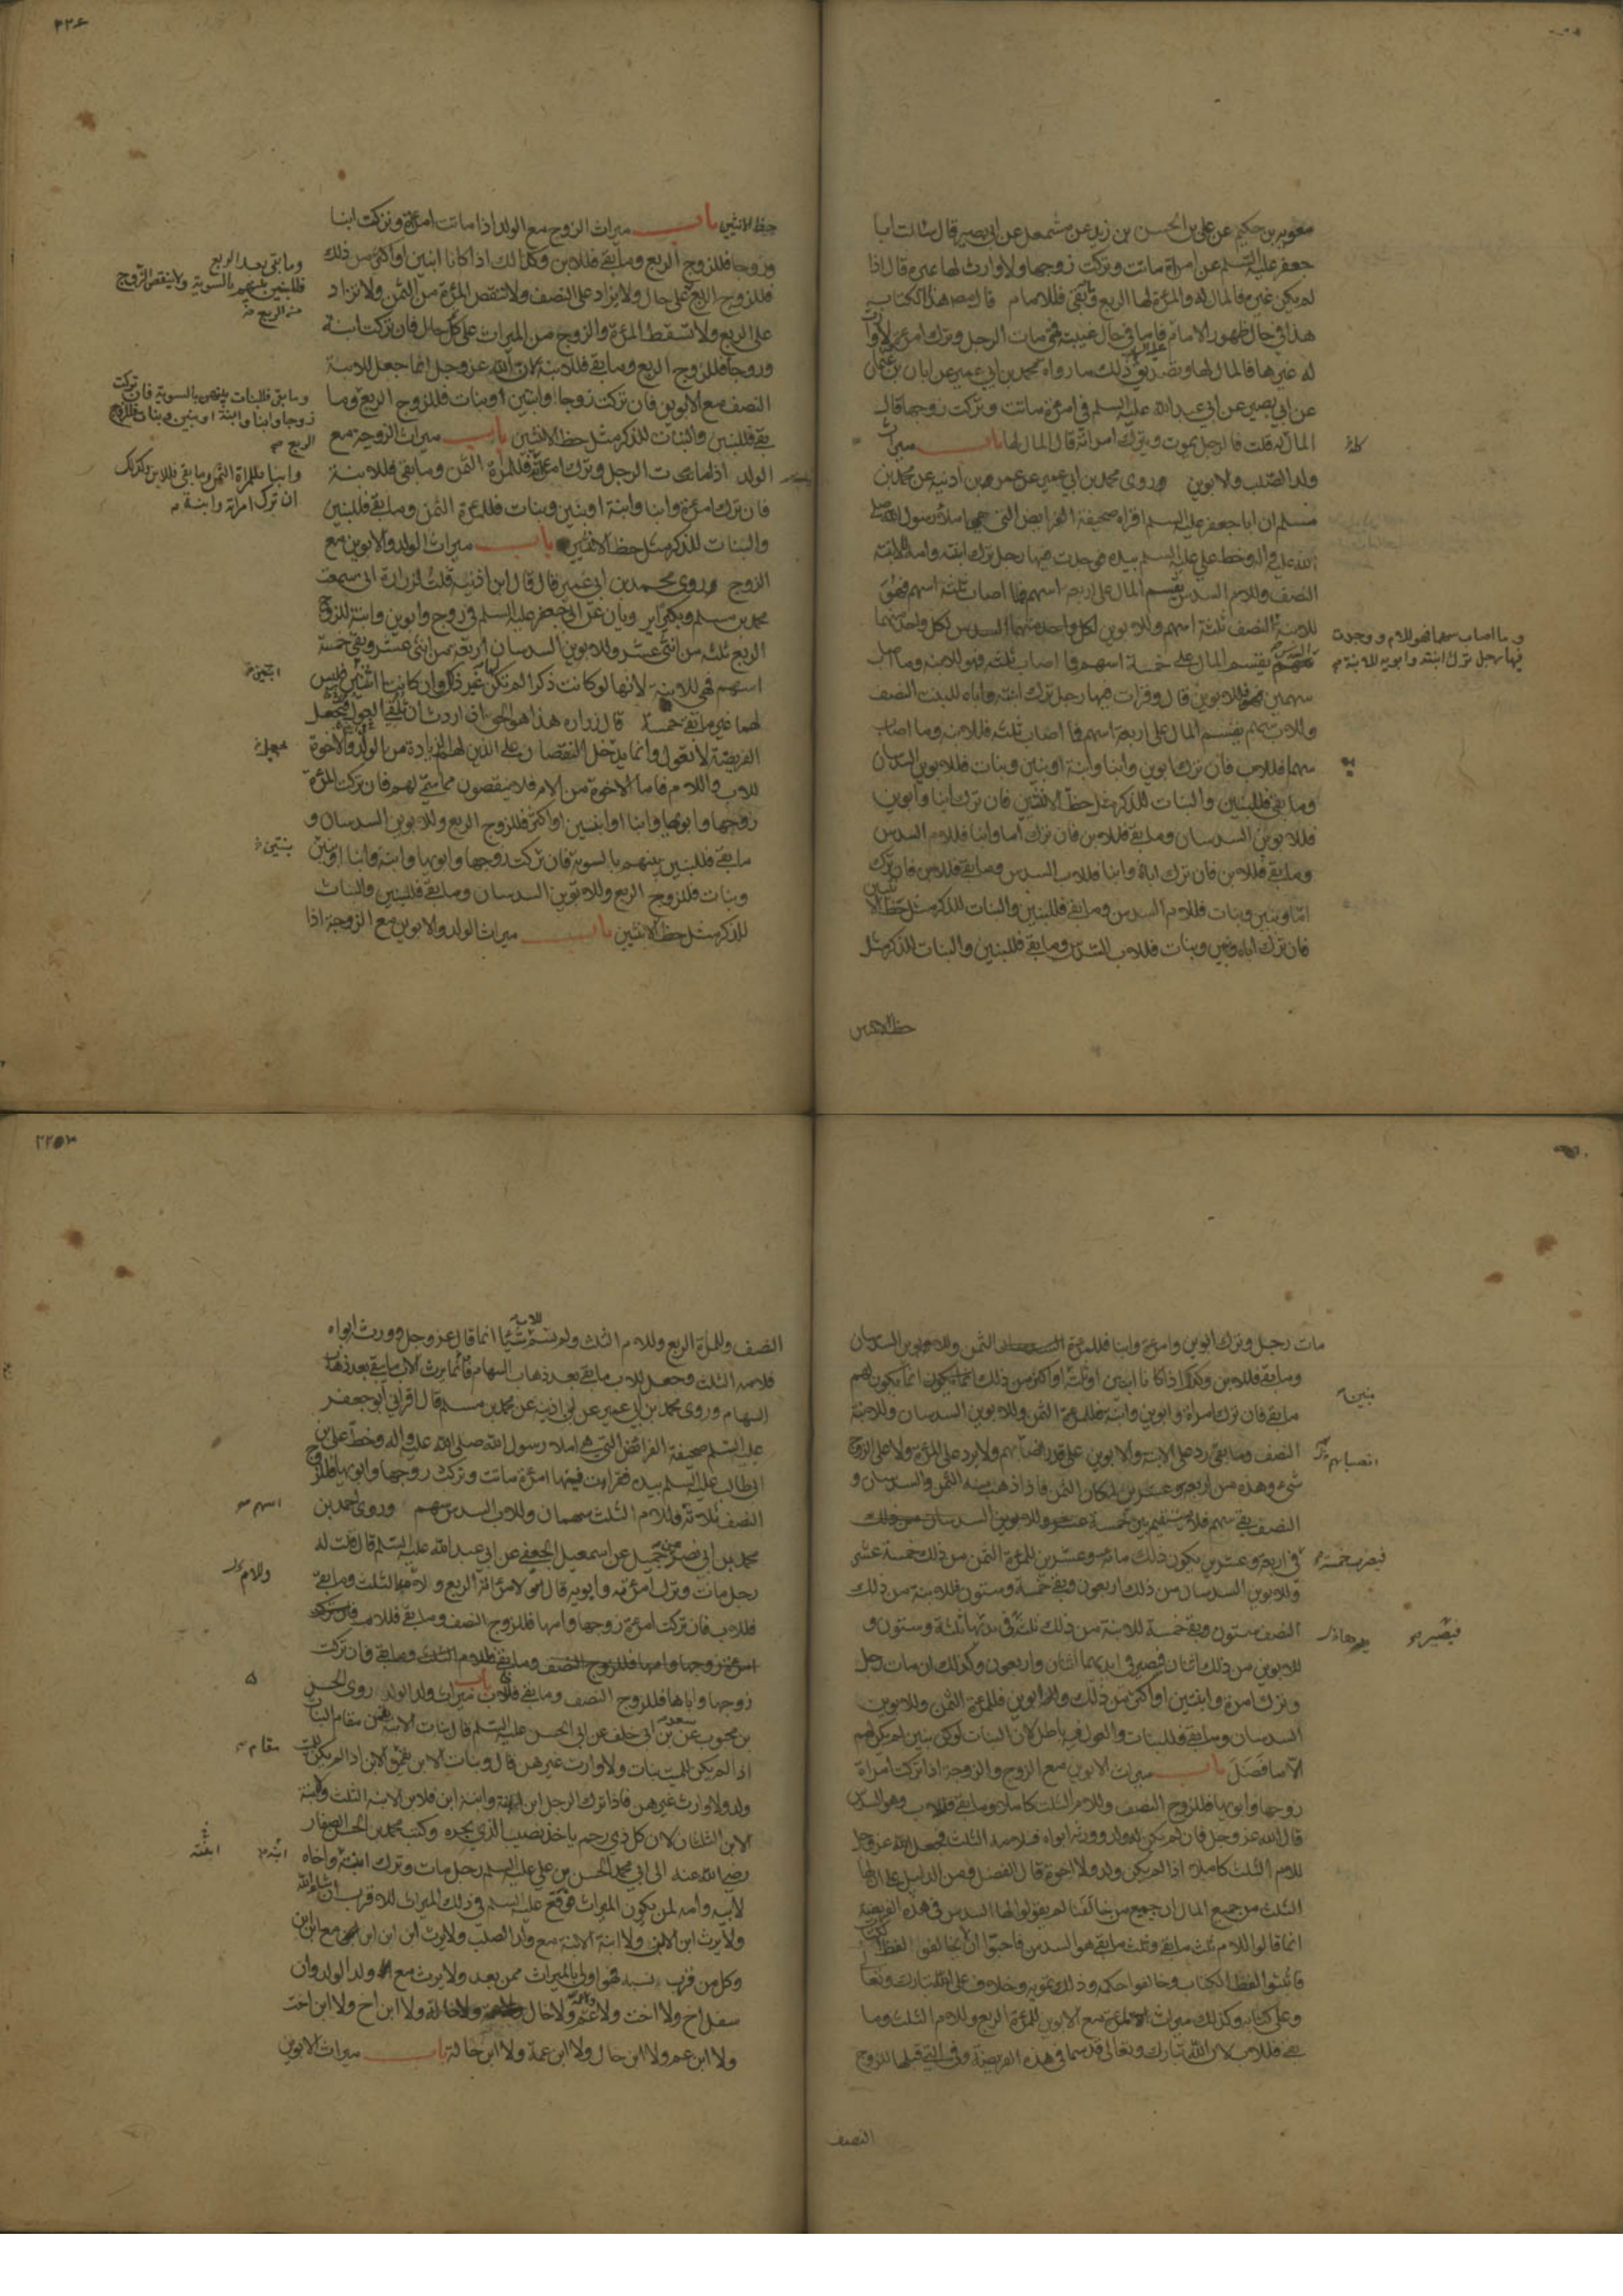 معوية بن حكيم عن علي بن الحسن بن زيد عن مشمعل عن ابي بصير قال سالت ابا
جعفر عليه السلم عن امراة ماتت وتركت زوجها ولا وارث لها غيره قال اذا
لم يكن غيره فالمال له والمرءة لها الربع وما بقي فللامام قال مصنف هذا الكتاب
هذا في حال ظهور الامام فاما في حال غيبته فمتى مات الرجل وترك امرءة ولا وارث
له غيرها فالمال لها وتصديق ذلك ما رواه محمد بن ابي عمير عن ابان بن عثمان
عن ابي بصير عن ابي عبد الله عليه السلم في امرءة ماتت وتركت زوجها قال
المال له قلت فالرجل يموت ويترك امراته قال المال لها باب ميراث
كله
ولد الصلب والابوين وروى محمد بن ابي عمير عن عمر بن اذنية عن محمد بن
مسلم ان ابا جعفر عليه السلم اقراه صحيفة الفرايض التي هي املاء رسول الله صلى
الله عليه واله وخط علي عليه السلم بيده فوجدت فيها رجل ترك ابنته وامه للابنة
النصف وللام السدس يقسم المال على اربعة اسهم فما اصاب ثلثة اسهم فهو
للابنة النصف ثلثة اسهم وللابوين لكل واحد منهما السدس لكل واحد منهما
وما اصاب سهما فهو للام ووجدت
فيها رجل ترك ابنته وابويه للابنة
يقسم المال على خمسة اسهم فما اصاب ثلثة فهو للابنة وما اصاب
سهمين فللابوين قال وقرات فيها رجل ترك ابنته واباه للبنت النصف
وللاب سهم يقسم المال على اربعة اسهم فما اصاب ثلثة فللابنة وما اصاب
سهما فللاب فان ترك ابوين وابنا وابنة او بنين وبنات فللابوين السدسان
وما بقي فللبنين والبنات للذكر مثل حظ الانثيين فان ترك ابنا وابوين
فللابوين السدسان وما بقي فللابن فان ترك اما وابنا فللام السدس
وما بقي فللابن فان ترك اباه وابنا فللاب السدس وما بقي فللابن فان ترك
اما وبنين وبنات فللام السدس وما بقي فللبنين والبنات للذكر مثل حظ الانثيين
فان ترك اباه وبنين وبنات فللاب السدس وما بقي فللبنين والبنات للذكر مثل
حظ الانثيين
٢٢٤
حظ الانثيين باب ميراث الزوج مع الولد اذا ماتت امرءة وتركت ابنا
وزوجا فللزوج الربع وما بقي فللابن وكذلك اذا كانا ابنين او اكثر من ذلك
وما بقي بعد الربع
فللبنين بينهم بالسوية ولا ينقص الزوج
من الربع
فللزوج الربع على حال ولا يزاد على النصف ولا تنقص المرءة من الثمن ولا تزاد
على الربع ولا تسقط المرءة والزوج من الميراث على كل حال فان تركت ابنة
وزوجا فللزوج الربع وما بقي فللابنة لان الله عز وجل انما جعل للابنة
النصف مع الابوين فان تركت زوجا وابنتين او بنات فللزوج الربع وما
وما بقي فللبنات بينهن بالسوية فان تركت
زوجا وابنا وابنة او بنين وبنات فللزوج
الربع
بقي فللبنين والبنات للذكر مثل حظ الانثيين باب ميراث الزوجة مع
الولد اذا مات الرجل وترك امرءة فللمراة الثمن وما بقي فللابنة
وابنا فللمراة الثمن وما بقي فللابن وكذلك
ان ترك امراة وابنة
فان ترك امرءة وابنا وابنة او بنين وبنات فللمرءة الثمن وما بقي فللبنين
والبنات للذكر مثل حظ الانثيين باب ميراث الولد والابوين مع
الزوج وروى محمد بن ابي عمير قال قال ابن اذنية قلت لزرارة اني سمعت
محمد بن مسلم وبكيرا يرويان عن ابي جعفر عليه السلم في زوج وابوين وابنة للزوج
الربع ثلثة من اثني عشر وللابوين السدسان اربعة من اثني عشر وبقي خمسة
اسهم فهي للابنة لانها لو كانت ذكرا لم تكن غير ذلك وان كانتا اثنتين فليس
ابنتين
لهما غير ما بقي خمسة قال زرارة هذا هو الحق ان اردت ان تلقي العول فتجعل
الفريضة لا تعول وانما يدخل النقصان على الذين لهم الزيادة من الولد والاخوة
للاب والام فاما الاخوة من الام فلا ينقصون مما سمي لهم فان تركت المرءة
زوجها وابويها وابنا او ابنين او اكثر فللزوج الربع وللابوين السدسان و
ما بقي فللبنين بينهم بالسوية فان تركت زوجها وابويها وابنة وابنا او بنين
وبنات فللزوج الربع وللابوين السدسان وما بقي فللبنين والبنات
للذكر مثل حظ الانثيين باب ميراث الولد والابوين مع الزوجة اذا
مات رجل وترك ابوين وامرءة وابنا فللمرءة الثمن وللابوين السدسان
وما بقي فللابن وكذا اذا كانا ابنين او ثلثة او اكثر من ذلك انما يكون لهم
بنين
ما بقي فان ترك امراة وابوين وابنة فللمرءة الثمن وللابوين السدسان وللابنة
النصف وما بقي رد على الابنة والابوين على قدر انصبائهم ولا يرد على المرءة ولا على الزوج
انصبائهم
شيء وهذه من اربعة وعشرين لمكان الثمن فاذا ذهب منه الثمن والسدسان و
النصف بقي سهم فلا يستقيم بين خمسة
في اربعة وعشرين يكون ذلك مائة وعشرين للمرءة الثمن من ذلك خمسة عشر
فيضرب خمسة
وللابوين السدسان من ذلك اربعون وبقي خمسة وستون فللابنة من ذلك
النصف ستون وبقي خمسة للابنة من ذلك ثلثة في يدها ثلثة وستون و
فيصير يدها
للابوين من ذلك اثنان فيصير في ايديهما اثنان واربعون وكذلك ان مات رجل
وترك امرءة وابنتين او اكثر من ذلك وابوين فللمرءة الثمن وللابوين
السدسان وما بقي فللبنات والعول فيه باطل لان البنات لو كن بنين لم يكن لهم
الا ما فضل باب ميراث الابوين مع الزوج والزوجة اذا تركت امراة
زوجها وابويها فللزوج النصف وللام الثلث كاملا وما بقي فللاب وهو السدس
قال الله عز وجل فان لم يكن له ولد وورثه ابواه فلامه الثلث فجعل الله عز وجل
للام الثلث كاملا اذا لم يكن ولد ولا اخوة قال الفضل ومن الدليل على ان لها
الثلث من جميع المال ان جميع من خالفنا لم يقولوا لها السدس في هذه الفريضة
انما قالوا للام ثلث ما بقي وثلث ما بقي هو السدس فاحبوا ان لا يخالفوا لفظ الكتاب
فاثبتوا لفظ الكتاب وخالفوا حكمه وذلك تمويه وخلاف على الله تبارك وتعالى
وعلى كتابه وكذلك ميراث المرءة مع الابوين للمرءة الربع وللام الثلث وما
بقي فللاب لان الله تبارك وتعالى قد سما في هذه الفريضة وفي التي قبلها للزوج
النصف
النصف وللمراة الربع وللام الثلث ولم يسم للاب شيئا انما قال عز وجل وورثه ابواه
فلامه الثلث وجعل للاب ما بقي بعد ذهاب السهام فانما يرث الاب ما بقي بعد ذهاب
السهام وروى محمد بن ابي عمير عن ابن اذنية عن محمد بن مسلم قال اقراني ابو جعفر
عليه السلم صحيفة الفرائض التي هي املاء رسول الله صلى الله عليه واله وخط علي بن
ابي طالب عليه السلم بيده فقرات فيها امرءة ماتت وتركت زوجها وابويها فللزوج
النصف ثلاثة وللام الثلث سهمان وللاب السدس سهم وروى احمد بن
اسهم
محمد بن ابي نصر عن جميل عن اسمعيل الجعفي عن ابي عبد الله عليه السلم قال قلت له
رجل مات وترك امرءته وابويه قال لامرءته الربع وللام الثلث وما بقي
وللام
فللاب فان تركت امرءة زوجها وامها فللزوج النصف وما بقي فللام
امرءة زوجها وامها فللزوج النصف وما بقي فللام وان تركت
زوجها واباها فللزوج النصف وما بقي فللاب باب ميراث ولد الولد روى الحسن
بن محبوب عن سعد بن ابي خلف عن ابي الحسن عليه السلم قال بنات الابنة يقمن مقام البنات
اذا لم يكن للميت بنات ولا وارث غيرهن قال وبنات الابن يقمن الابن اذا لم يكن للميت
مقام
ولد ولا وارث غيرهن فاذا ترك الرجل ابن ابنة وابنة ابن فلابن الابنة الثلث ولابنة
الابن الثلثان لان كل ذي رحم ياخذ نصيب الذي يجره وكتب محمد بن الحسن الصفار
رضي الله عنه الى ابي محمد الحسن بن علي عليه السلم رجل مات وترك ابنة ابنته واخاه
ابنته
لابيه وامه لمن يكون الميراث فوقع عليه السلم في ذلك الميراث للاقرب ان شاء الله
ولا يرث ابن الابن ولا ابنة الابنة مع ولد الصلب ولا يرث ابن ابن ابن مع ابن ابن
وكل من قرب نسبه فهو اولى بالميراث ممن بعد ولا يرث مع ولد الولد وان
سفل اخ ولا اخت ولا عم ولا خال ولا خالة ولا ابن اخ ولا ابن اخت
ولا ابن عم ولا ابن خال ولا ابن عمة ولا ابن خالة باب ميراث الابوين